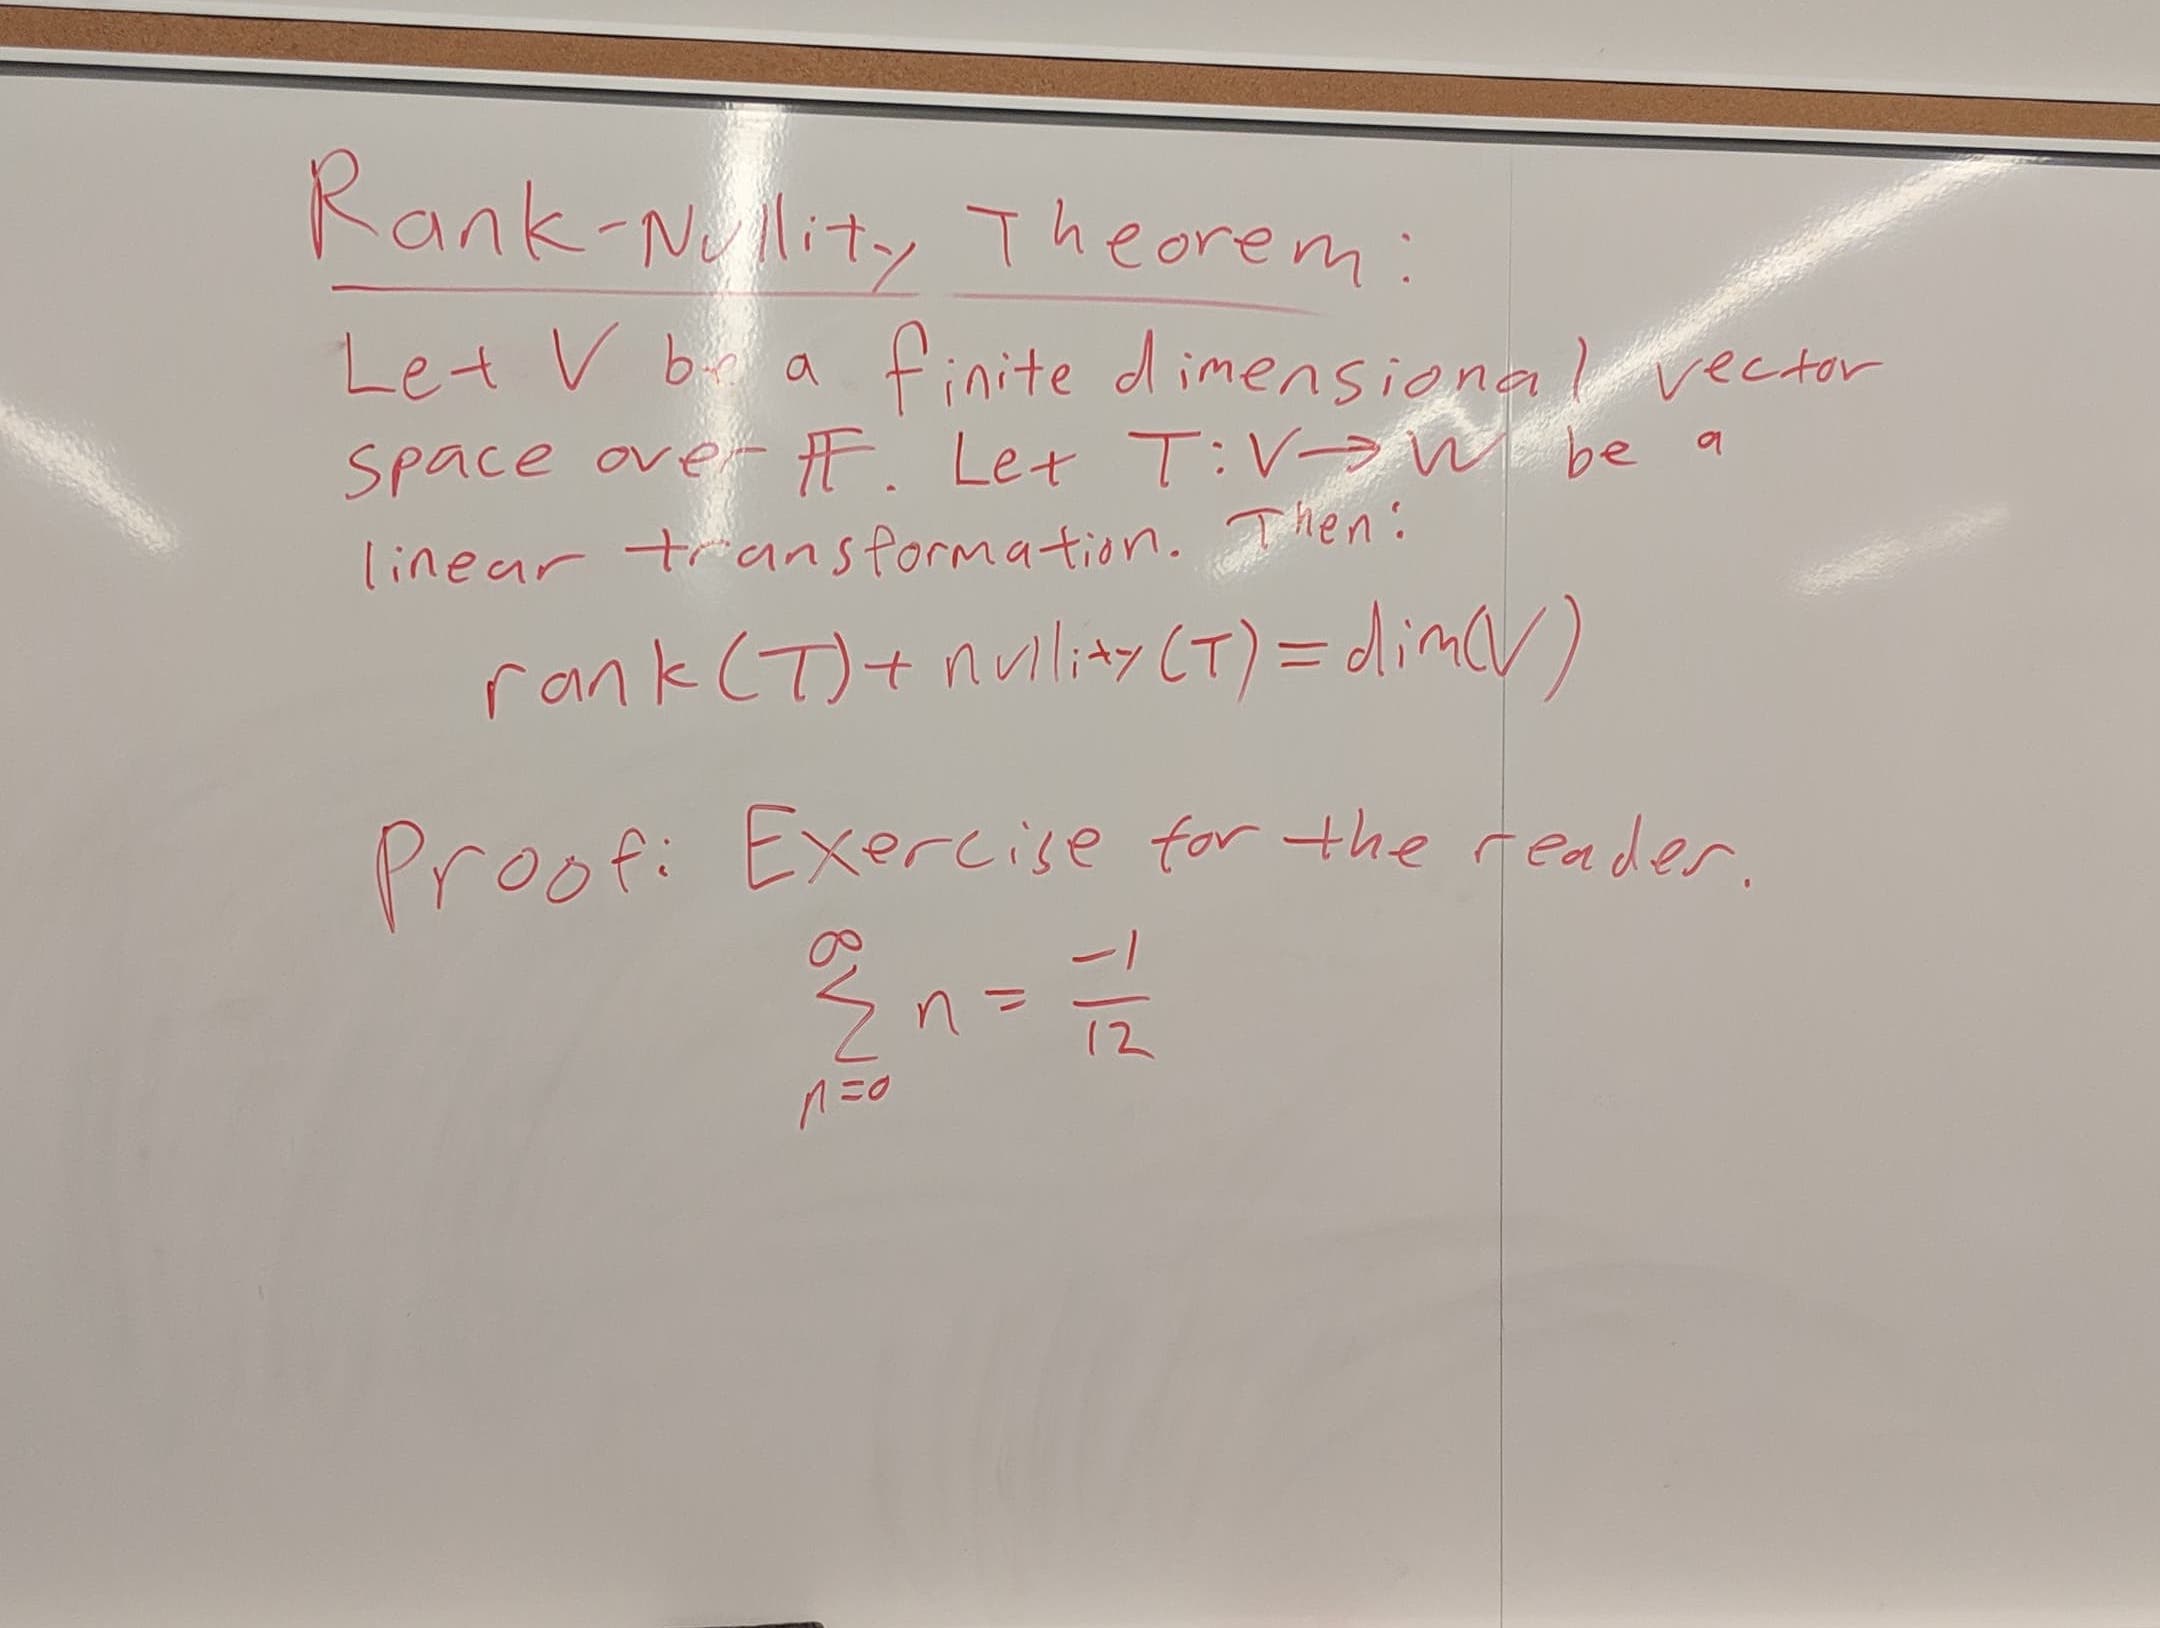 Rank-Nullity Theorem:
Let V be a finite dimensional vector
space over 𝔽. Let T:V→W be a
linear transformation. Then:
rank(T)+nullity(T)=dim(V)
Proof: Exercise for the reader.
∞
∑ n = -1/12
n=0